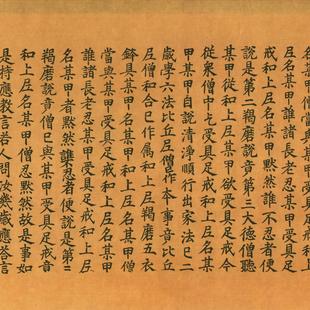 名某甲僧當與某甲受具足戒和上
尼名某甲誰諸長老忍某甲受具足
戒和上尼名某甲者默然誰不忍者便
說是第二羯磨說竟第三大德僧聽
某甲從和上尼某甲欲受具足戒今
從衆僧中乞受具足戒和上尼名某
甲某甲自說清淨順行出家法已二
歲學六法比丘尼僧作本事竟比丘
尼僧和合已作属和上尼羯磨五衣
鉢具某甲名某甲和上尼名某甲僧
當與某甲受具足戒和上尼名某甲
誰諸長老忍某甲受具足戒和上尼
名某甲者默然誰忍者便說是第三
羯磨說竟僧已與某甲受具足戒竟
和上尼名某甲僧忍默然故是事如
是持應教言若人問汝幾歲應答言